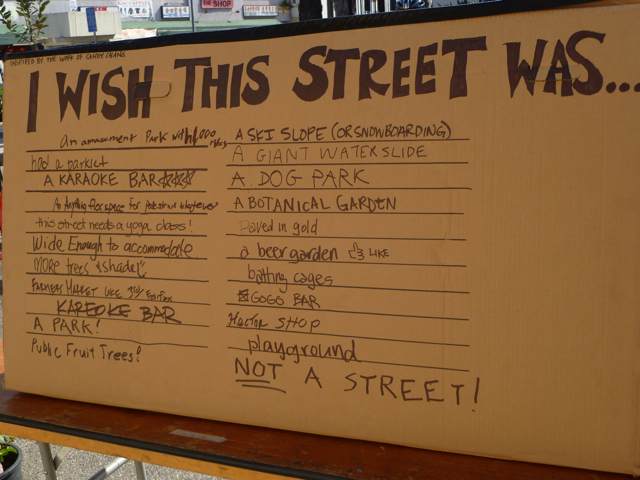 THE SHOP
INSPIRED BY THE WORK OF CANDY CHANG
I WISH THIS STREET WAS...
An amusement Park with 1,000 rides
had a parklet
A KARAOKE BAR☆☆☆
An Anything Goes space for pedestrians whatever
this street needs a yoga class!
Wide Enough to accommodate
MORE trees & shade
FARMERS MARKET LIKE 3rd/Fairfax
KAREOKE BAR
A PARK!
Public Fruit Trees!
A SKI SLOPE (OR SNOWBOARDING)
A GIANT WATERSLIDE
A DOG PARK
A BOTANICAL GARDEN
paved in gold
a beer garden LIKE
batting cages
GOGO BAR
Hector SHOP
playground
NOT A STREET!